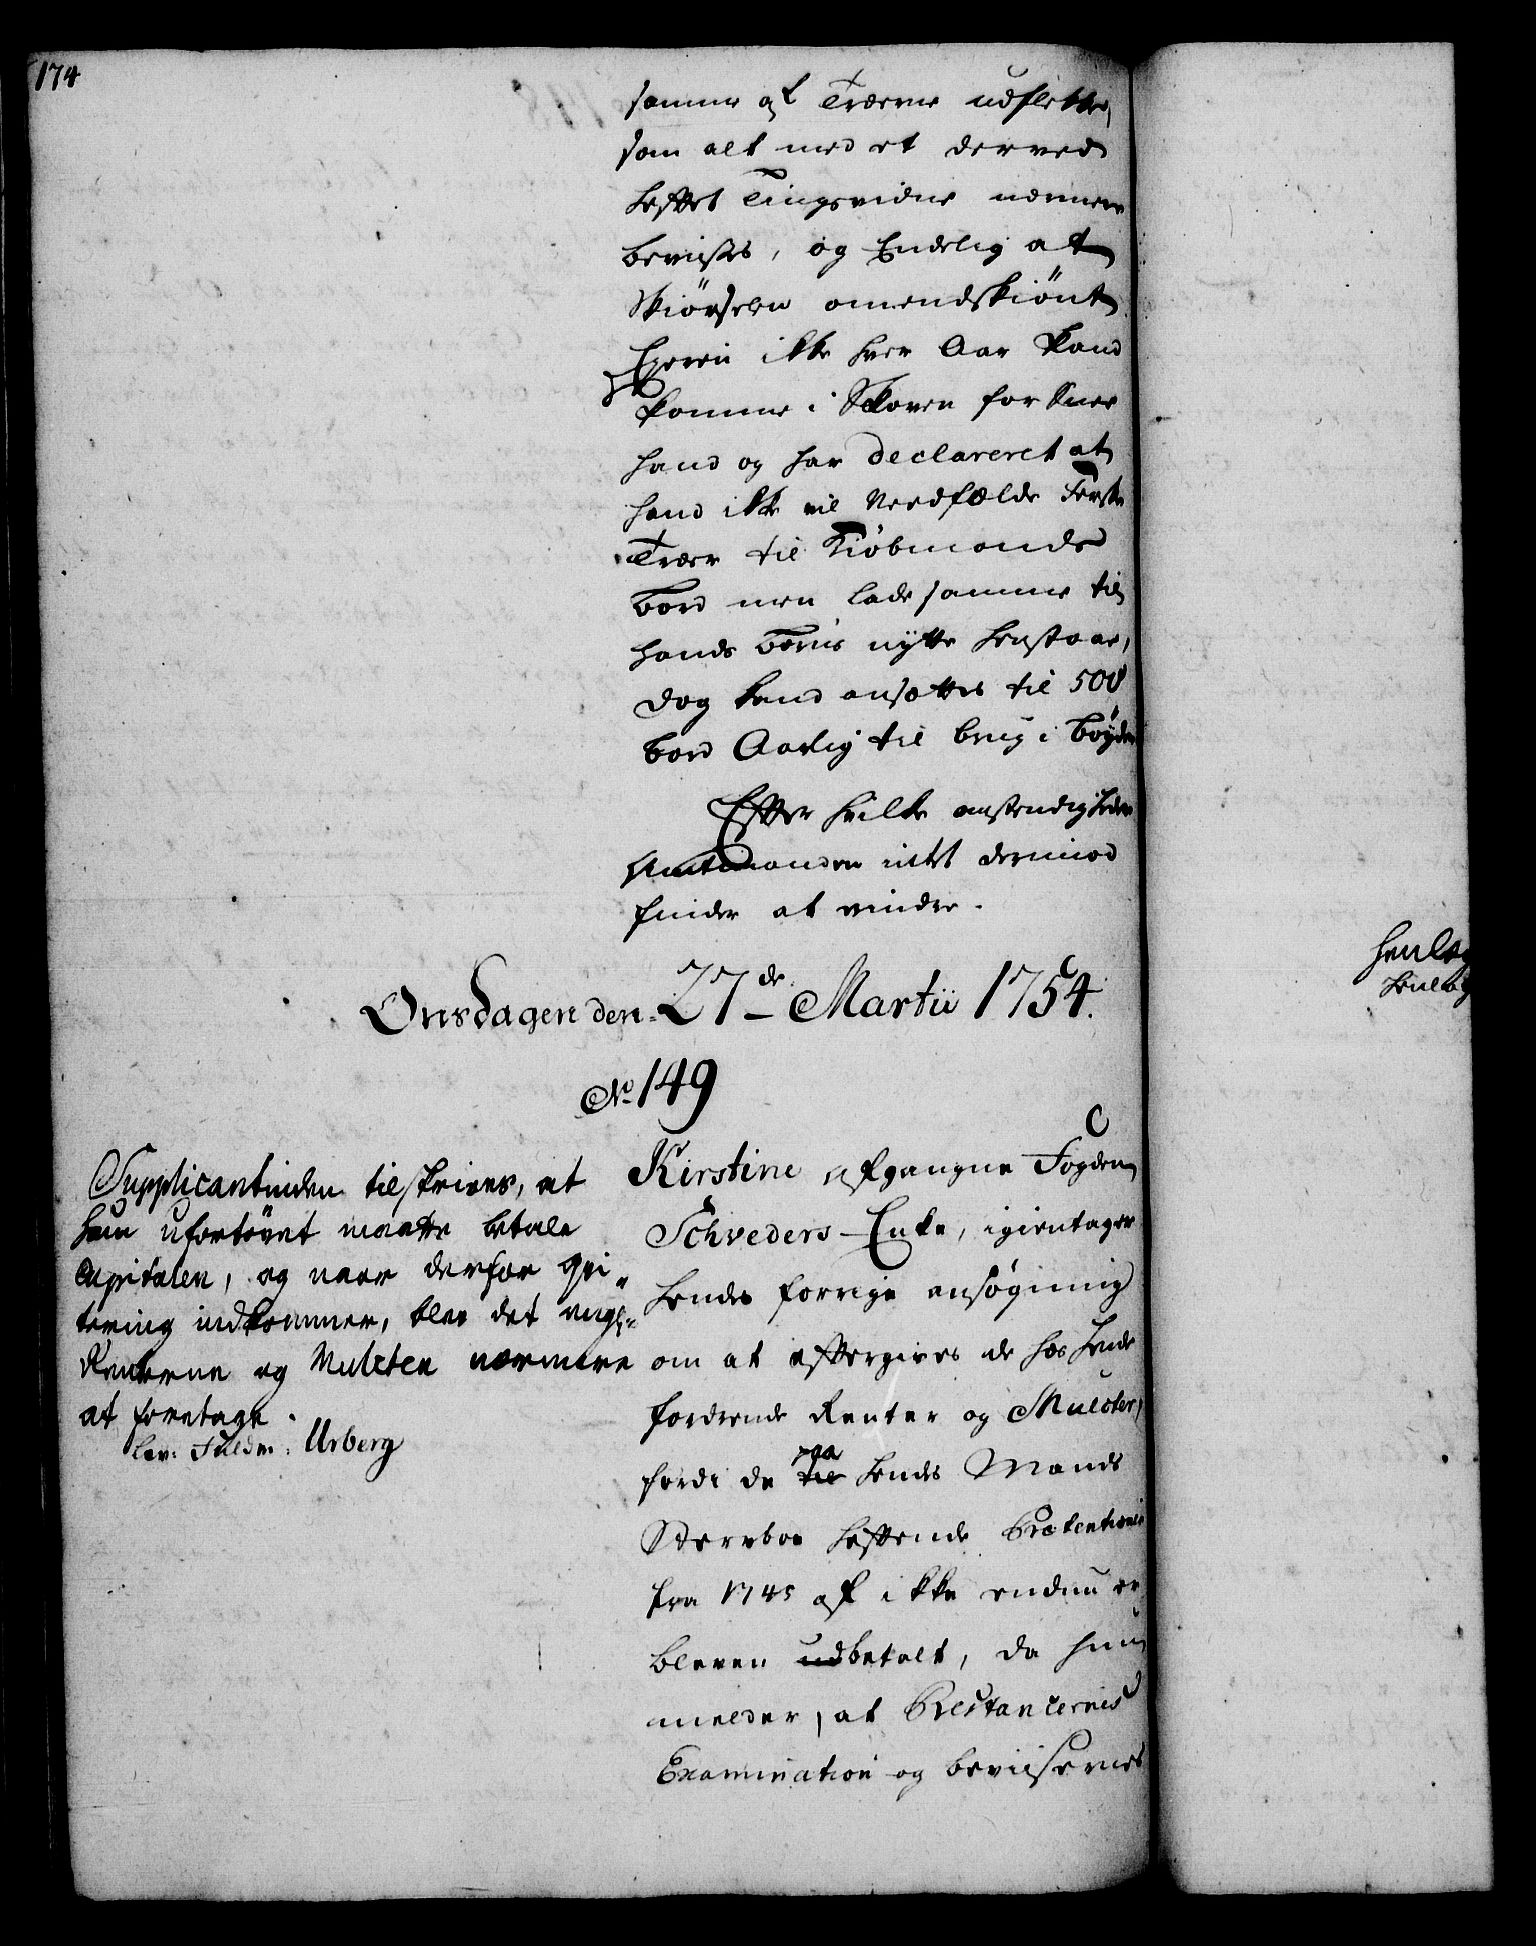 174
samme af Træerne udflette,
som alt med et derved
hæftet Tingsvidne nærmere
bevises, og Endelig at
Skiørselen omendskiønt
Eyeren ikke hver Aar kand
komme i Skoven for Snee
hand og har declareret at
hand ikke vil Needfælde Ferske
Træer til Kiøbmands
bord men lade samme til
hands Børns nytte henstaae,
dog kand ansættes til 500
bord Aarlig til brug i bøyden
Efter hvilke omstendigheder
Amtmanden intet derimod
finder at erindre.
Onsdagen den 27de Martii 1754.
No 149
Kirstine afgangne Fogden
Schveders Enke, igientager
hendes forrige ansøgning
om at eftergives de hos hende
fordrende Renter og Mulcter,
fordi de til paa hendes Mands
Sterboe hæftende Prætentioner
fra 1745 af ikke endnu er
bleven udbetalt, da hun
melder, at Restancernes
Examination og bevisernes
Supplicantinden tilskrives, at
hun ufortøvet maatte betale
Capitalen, og naar derfor Qvi-
tering indkommer, blev det angl:
Renterne og Mulcten nærmere
at foretage.
lev: Fuldm: Urberg